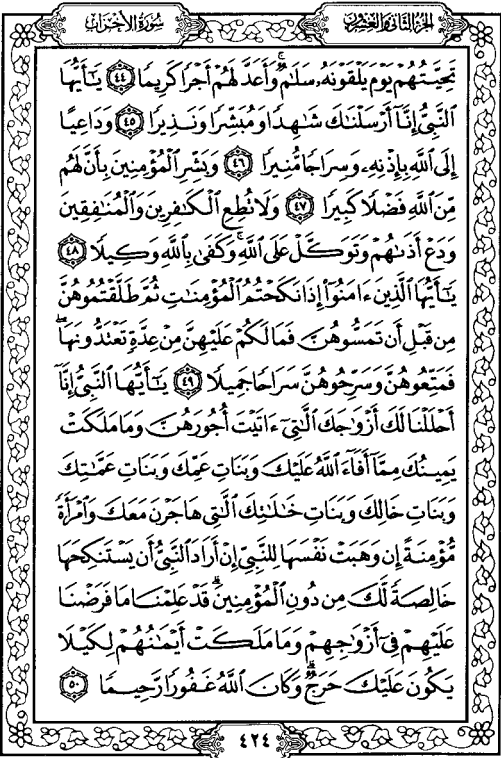 الجزء الثاني والعشرون
سورة الأحزاب
تَحِيَّتُهُمْ يَوْمَ يَلْقَوْنَهُۥ سَلَٰمٌۚ وَأَعَدَّ لَهُمْ أَجْرًا كَرِيمًا ٤٤ يَٰٓأَيُّهَا
ٱلنَّبِيُّ إِنَّآ أَرْسَلْنَٰكَ شَٰهِدًا وَمُبَشِّرًا وَنَذِيرًا ٤٥ وَدَاعِيًا
إِلَى ٱللَّهِ بِإِذْنِهِۦ وَسِرَاجًا مُّنِيرًا ٤٦ وَبَشِّرِ ٱلْمُؤْمِنِينَ بِأَنَّ لَهُم
مِّنَ ٱللَّهِ فَضْلًا كَبِيرًا ٤٧ وَلَا تُطِعِ ٱلْكَٰفِرِينَ وَٱلْمُنَٰفِقِينَ
وَدَعْ أَذَىٰهُمْ وَتَوَكَّلْ عَلَى ٱللَّهِۚ وَكَفَىٰ بِٱللَّهِ وَكِيلًا ٤٨
يَٰٓأَيُّهَا ٱلَّذِينَ ءَامَنُوٓا۟ إِذَا نَكَحْتُمُ ٱلْمُؤْمِنَٰتِ ثُمَّ طَلَّقْتُمُوهُنَّ
مِن قَبْلِ أَن تَمَسُّوهُنَّ فَمَا لَكُمْ عَلَيْهِنَّ مِنْ عِدَّةٍ تَعْتَدُّونَهَاۖ
فَمَتِّعُوهُنَّ وَسَرِّحُوهُنَّ سَرَاحًا جَمِيلًا ٤٩ يَٰٓأَيُّهَا ٱلنَّبِيُّ إِنَّآ
أَحْلَلْنَا لَكَ أَزْوَٰجَكَ ٱلَّٰتِىٓ ءَاتَيْتَ أُجُورَهُنَّ وَمَا مَلَكَتْ
يَمِينُكَ مِمَّآ أَفَآءَ ٱللَّهُ عَلَيْكَ وَبَنَاتِ عَمِّكَ وَبَنَاتِ عَمَّٰتِكَ
وَبَنَاتِ خَالِكَ وَبَنَاتِ خَٰلَٰتِكَ ٱلَّٰتِى هَاجَرْنَ مَعَكَ وَٱمْرَأَةً
مُّؤْمِنَةً إِن وَهَبَتْ نَفْسَهَا لِلنَّبِيِّ إِنْ أَرَادَ ٱلنَّبِيُّ أَن يَسْتَنكِحَهَا
خَالِصَةً لَّكَ مِن دُونِ ٱلْمُؤْمِنِينَۗ قَدْ عَلِمْنَا مَا فَرَضْنَا
عَلَيْهِمْ فِىٓ أَزْوَٰجِهِمْ وَمَا مَلَكَتْ أَيْمَٰنُهُمْ لِكَيْلَا
يَكُونَ عَلَيْكَ حَرَجٌۗ وَكَانَ ٱللَّهُ غَفُورًا رَّحِيمًا ٥٠
٤٢٤